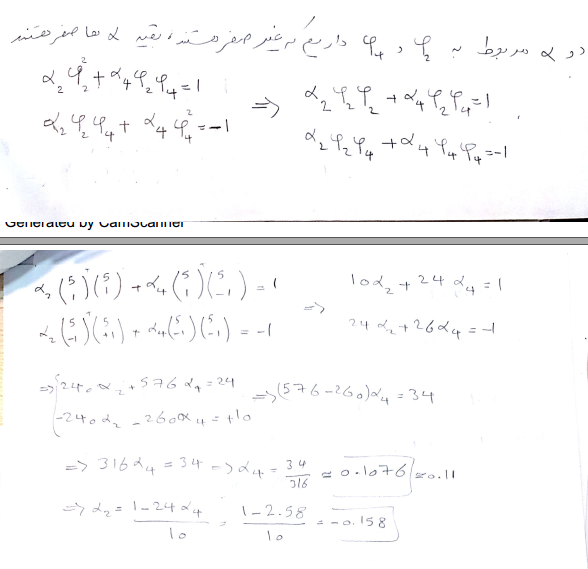 دو α مربوط به φ₂ و φ₄ داریم که غیر صفر هستند، بقیه α ها صفر هستند
α₂φ₂² + α₄φ₂φ₄ = 1
α₂φ₂φ₄ + α₄φ₄² = -1
=> α₂φ₂φ₂ + α₄φ₂φ₄ = 1
α₂φ₂φ₄ + α₄φ₄φ₄ = -1
Generated by CamScanner
α₂(5 1)ᵀ(5 1) + α₄(5 1)ᵀ(5 -1) = 1
α₂(5 -1)ᵀ(5 +1) + α₄(5 -1)ᵀ(5 -1) = -1
=> 10α₂ + 24α₄ = 1
24α₂ + 26α₄ = -1
=> { 240α₂ + 576α₄ = 24
-240α₂ - 260α₄ = +10
=> (576-260)α₄ = 34
=> 316α₄ = 34 => α₄ = 34/316 ≈ 0.1076 ≈ 0.11
=> α₂ = (1-24α₄)/10 = (1-2.58)/10 = -0.158